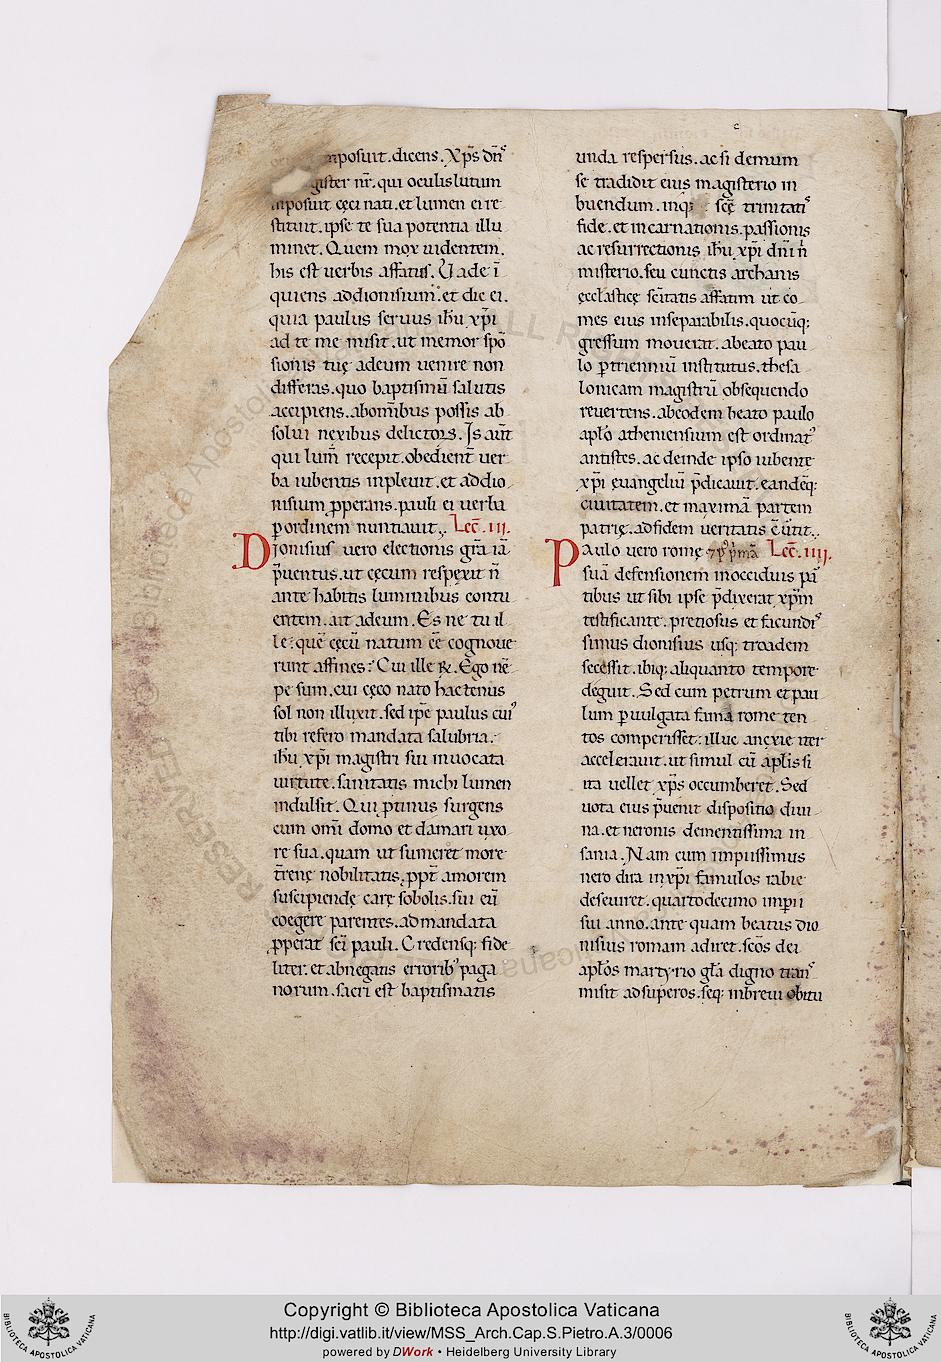 posuit. dicens. Xp̄s dn̄s
gister nr̄. qui oculis lutum
inposuit cęci nati. et lumen ei re
stituit. ipse te sua potentia illu
minet. Quem mox uidentem.
his est uerbis affatus. Uade ī
quiens ad dionisium. et dic ei.
quia paulus seruus ihū xp̄i
ad te me misit. ut memor spō
sionis tuę ad eum uenire non
differas. quo baptismū salutis
accipiens. ab om̄ibus possis ab
solui nexibus delictoꝝ. Is aūt
qui lum̄ recepit. obedient̄ uer
ba iubentis inpleuit. et ad dio
nisium ꝓperans. pauli ei uerba
ꝑ ordinem nuntiauit. Lec̄. III.
Dionisius uero electionis gr̄a iā
p̄uentus. ut cęcum respexit n̄
ante habitis luminibus contu
entem. ait ad eum. Es ne tu il
le. quē cęcū natum eē cognoue
runt affines? Cui ille ꝶ. Ego nē
pe sum. cui cęco nato hactenus
sol non illuxit. sed ip̄e paulus cuiꝰ
tibi refero mandata salubria.
ihū xp̄i magistri sui inuocata
uirtute. sanitatis michi lumen
indulsit. Qui p̄tinus surgens
cum om̄i domo et damari uxo
re sua. quam ut sumeret more
t̄renę nobilitatis. ꝓpt̄ amorem
suscipiendę carę sobolis. sui eū
coegere parentes. ad mandata
ꝓperat sc̄i pauli. Credensq; fide
liter. et abnegatis erroribꝰ paga
norum. sacri est baptismatis
unda respersus. ac si demum
se tradidit eius magisterio in
buendum. inq; scę̄ trinitatiꝰ
fide. et incarnationis. passionis
ac resurrectionis ihū xp̄i dn̄i n̄
misterio. seu cunctis archanis
ęcclasticę sc̄itatis affatim ut co
mes eius inseparabilis. quocūq;
gressum mouerat. a beato pau
lo ꝑ trienniū institutus. thesa
lonicam magistrū obsequendo
reuertens. ab eodem beato paulo
apl̄o atheniensium est ordinatꝰ
antistes. ac deinde ipso iubente
xp̄i euangeliū p̄dicauit. eandēq;
ciuitatem. et maximā partem
patrię. ad fidem ueritatis c̄uertit.
Paulo uero romę Lec̄. IIII.
suā defensionem in occiduis pa᷒
tibus ut sibi ipse p̄dixerat xp̄m
testificante. pretiosus et facundiꝰ
simus dionisius usq; troadem
secessit. ibiq; aliquanto tempore
deguit. Sed cum petrum et pau
lum ꝑuulgata fama rome ten
tos comperisset: illuc anxie iter
accelerauit. ut simul cū apl̄is si
ita uellet xp̄s occumberet. Sed
uota eius p̄uenit dispositio diui
na. et neronis dementissima in
sania. Nam cum impiissimus
nero dira in xp̄i famulos rabie
deseuiret. quartodecimo imp̄ii
sui anno. ante quam beatus dio
nisius romam adiret. sc̄os dei
apl̄os martyrio gl̄a digno transꝰ
misit ad superos. seq; in breui obitu
Copyright © Biblioteca Apostolica Vaticana
http://digi.vatlib.it/view/MSS_Arch.Cap.S.Pietro.A.3/0006
powered by DWork • Heidelberg University Library
BIBLIOTECA APOSTOLICA VATICANA
BIBLIOTECA APOSTOLICA VATICANA